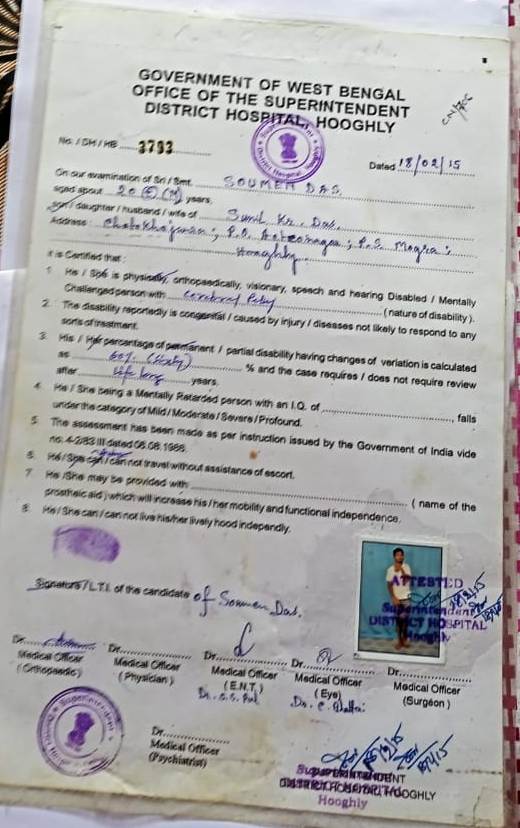 GOVERNMENT OF WEST BENGAL
OFFICE OF THE SUPERINTENDENT
DISTRICT HOSPITAL, HOOGHLY
No. / DH / HB 3793
Dated 18/02/15
On our examination of Sri / Smt. SOUMEN DAS.
aged about 20 years.
son / daughter / husband / wife of Sunil Kr. Das.
Address : P.S. Mogra ;
Hooghly.
It is Certified that :
1. He / She is physically, orthopaedically, visionary, speech and hearing Disabled / Mentally
Challenged person with Cerebral Palsy ( nature of disability ).
2. The disability reportedly is congenital / caused by injury / diseases not likely to respond any
sorts of treatment.
3. His / Her percentage of permanent / partial disability having changes of variation is calculated
as 60% (Sixty) % and the case requires / does not require review
after Life long years.
4. He / She being a Mentally Retarded person with an I.Q. of falls
under the category of Mild / Moderate / Severe / Profound.
5. The assessment has been made as per instruction issued by the Government of India vide
no. 4-2/83 III dated 06.08.1986.
6. He / She can / can not travel without assistance of escort.
7. He /She may be provided with ( name of the
prosthetic aid ) which will increase his / her mobility and functional independence.
8. He / She can / can not live his/her lively hood independly.
ATTESTED
Superintendent
DISTRICT HOSPITAL
Hooghly
Signature / L.T.I. of the candidate of Soumen Das.
Dr. Dr. Dr. Dr. Dr.
Medical Officer Medical Officer Medical Officer Medical Officer Medical Officer
( Orthopaedic) (Physician) ( E.N.T.) ( Eye) (Surgeon)
Dr.
Medical Officer
(Psychiatrist)
SUPERINTENDENT
DISTRICT HOSPITAL, HOOGHLY
Hooghly